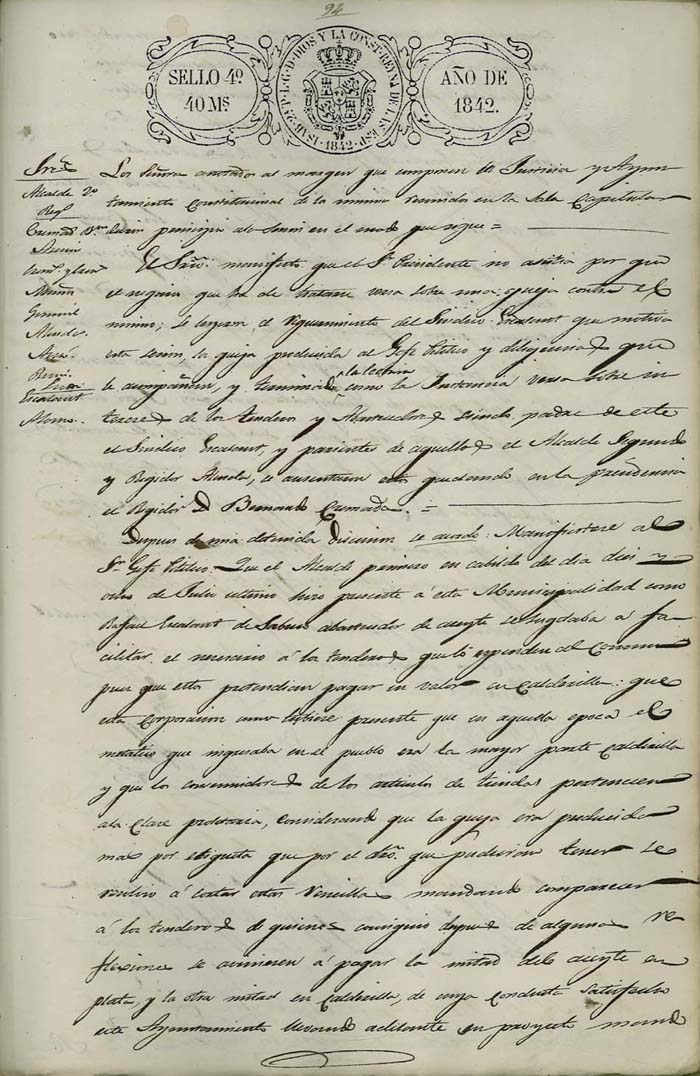 94
SELLO 4º
40 Ms
ISAB. 2ª P. L. G. D. DIOS Y LA CONST. REYNA DE LAS ESP. 1842
AÑO DE
1842.
Sres
Alcalde 2º
Regs
Escalant
Alonso..
Los Señores anotados al margen que componen la Justicia y Ayun
tamiento Constitucional de la misma reunidos en la Sala Capitular
principio a la sesion en el modo que sigue =
El Srio. manifestó que el Sr. Presidente no asistia por que
el negocio que ha de tratarse versa sobre una queja contra el
mismo; Se leyeron el del Sindico Escalant que motiva
esta sesion, la queja producida al Gefe Politico y diligencias que
le acompañan, y terminada la lectura como la versa sobre in
tereses de los tenderos y Abastecedores siendo padre de este
el Sindico Escalant, y parientes de aquellos el Alcalde Segundo
y Regidor se ausentaron estos quedando en la presidencia
el Regidor D. Bernardo =
Despues de una detenida discusion se acordo: Manifestar al
Sr. Gefe Politico. Que el Alcalde primero en cabildo del dia diez y
ocho de Julio ultimo hizo presente á esta Municipalidad como
Rafael Escalant de abastecedor de aceyte se negaba a fa-
cilitar el necesario á los tenderos que lo espenden al Comun
pues que estos pretendian pagar su valor en Calderilla: que
esta Corporacion como tubiese presente que en aquella epoca el
metalico que ingresaba en el pueblo era la mayor parte Calderilla
y que los consumidores de los articulos de tiendas pertenecen
a la Clase proletaria, considerando que la queja era producida
mas por etiqueta que por el dro. que pudieran tener se
resolvio á cortar estas rencillas mandando comparecer
á los tenderos de quienes consiguio despues de algunas re
flexiones se aviniesen á pagar la mitad del aceyte en
plata, y la otra mitad en Calderilla, de cuya conducta satisfecho
este Ayuntamiento llevando adelante su proyecto mandó